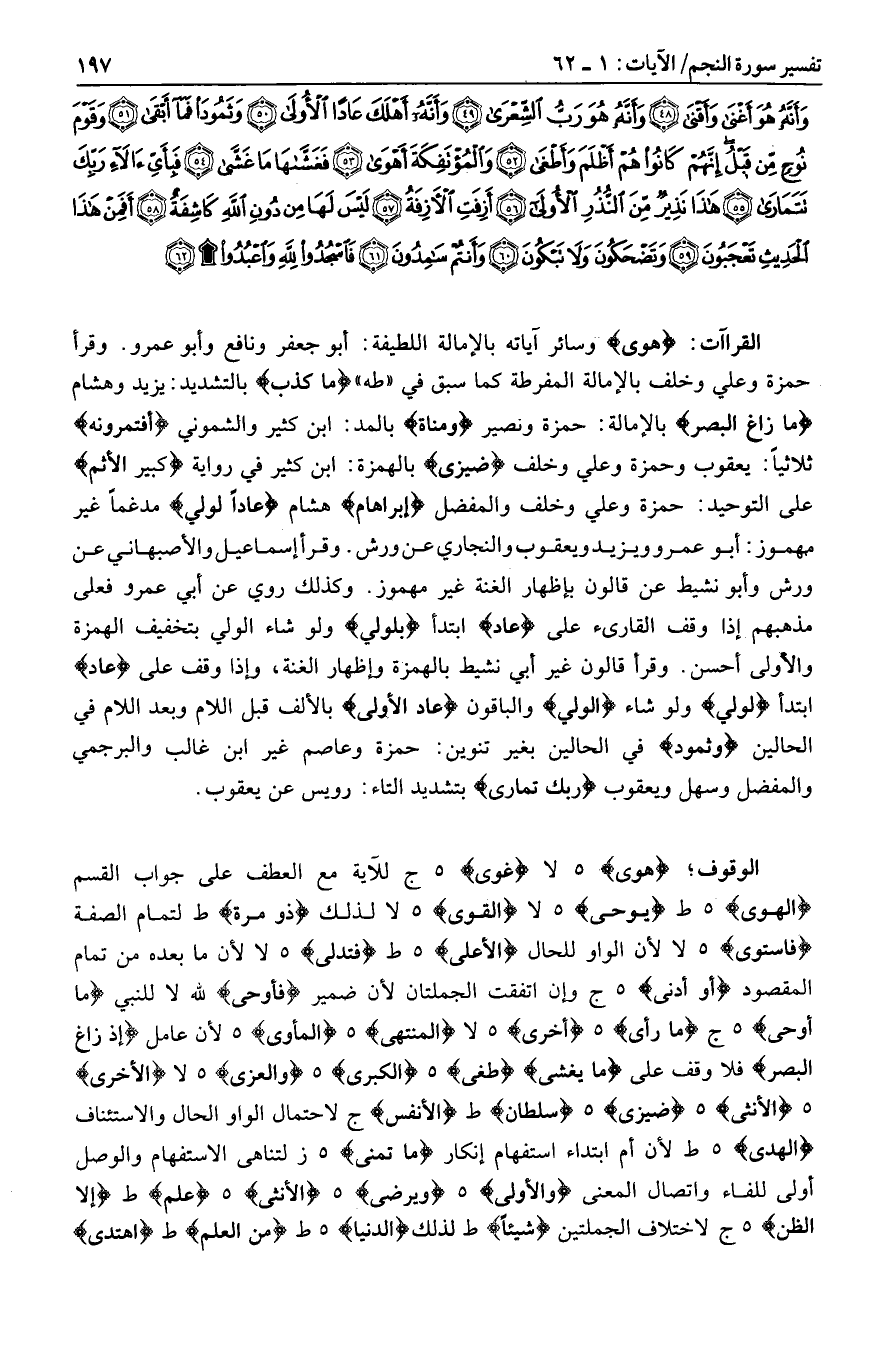 تفسير سورة النجم/ الآيات: ١ ـ ٦٢ ١٩٧
وَأَنَّهُۥ هُوَ أَغْنَىٰ وَأَقْنَىٰ ﴿٤٨﴾ وَأَنَّهُۥ هُوَ رَبُّ ٱلشِّعْرَىٰ ﴿٤٩﴾ وَأَنَّهُۥٓ أَهْلَكَ عَادًا ٱلْأُولَىٰ ﴿٥٠﴾ وَثَمُودَا۟ فَمَآ أَبْقَىٰ ﴿٥١﴾ وَقَوْمَ
نُوحٍ مِّن قَبْلُ ۖ إِنَّهُمْ كَانُوا۟ هُمْ أَظْلَمَ وَأَطْغَىٰ ﴿٥٢﴾ وَٱلْمُؤْتَفِكَةَ أَهْوَىٰ ﴿٥٣﴾ فَغَشَّىٰهَا مَا غَشَّىٰ ﴿٥٤﴾ فَبِأَىِّ ءَالَآءِ رَبِّكَ
تَتَمَارَىٰ ﴿٥٥﴾ هَٰذَا نَذِيرٌ مِّنَ ٱلنُّذُرِ ٱلْأُولَىٰٓ ﴿٥٦﴾ أَزِفَتِ ٱلْآزِفَةُ ﴿٥٧﴾ لَيْسَ لَهَا مِن دُونِ ٱللَّهِ كَاشِفَةٌ ﴿٥٨﴾ أَفَمِنْ هَٰذَا
ٱلْحَدِيثِ تَعْجَبُونَ ﴿٥٩﴾ وَتَضْحَكُونَ وَلَا تَبْكُونَ ﴿٦٠﴾ وَأَنتُمْ سَٰمِدُونَ ﴿٦١﴾ فَٱسْجُدُوا۟ لِلَّهِ وَٱعْبُدُوا۟ ۩ ﴿٦٢﴾
القراآت: ﴿هوى﴾ وسائر آياته بالإمالة اللطيفة: أبو جعفر ونافع وأبو عمرو. وقرأ
حمزة وعلي وخلف بالإمالة المفرطة كما سبق في «طه» ﴿ما كذب﴾ بالتشديد: يزيد وهشام
﴿ما زاغ البصر﴾ بالإمالة: حمزة ونصير ﴿ومناة﴾ بالمد: ابن كثير والشموني ﴿أفتمرونه﴾
ثلاثياً: يعقوب وحمزة وعلي وخلف ﴿ضيزى﴾ بالهمزة: ابن كثير في رواية ﴿كبير الأثم﴾
على التوحيد: حمزة وعلي وخلف والمفضل ﴿إبراهام﴾ هشام ﴿عاداً لولي﴾ مدغماً غير
مهموز: أبو عمرو ويزيد ويعقوب والنجاري عن ورش. وقرأ إسماعيل والأصبهاني عن
ورش وأبو نشيط عن قالون بإظهار الغنة غير مهموز. وكذلك روي عن أبي عمرو فعلى
مذهبهم إذا وقف القارىء على ﴿عاد﴾ ابتدأ ﴿بلولي﴾ ولو شاء الولي بتخفيف الهمزة
والأولى أحسن. وقرأ قالون غير أبي نشيط بالهمزة وإظهار الغنة، وإذا وقف على ﴿عاد﴾
ابتدأ ﴿لولي﴾ ولو شاء ﴿الولي﴾ والباقون ﴿عاد الأولى﴾ بالألف قبل اللام وبعد اللام في
الحالين ﴿وثمود﴾ في الحالين بغير تنوين: حمزة وعاصم غير ابن غالب والبرجمي
والمفضل وسهل ويعقوب ﴿ربك تمارى﴾ بتشديد التاء: رويس عن يعقوب.
الوقوف؛ ﴿هوى﴾ ٥ لا ﴿غوى﴾ ٥ ج للآية مع العطف على جواب القسم
﴿الهوى﴾ ٥ ط ﴿يوحى﴾ ٥ لا ﴿القوى﴾ ٥ لا لذلك ﴿ذو مرة﴾ ط لتمام الصفة
﴿فاستوى﴾ ٥ لا لأن الواو للحال ﴿الأعلى﴾ ٥ ط ﴿فتدلى﴾ ٥ لا لأن ما بعده من تمام
المقصود ﴿أو أدنى﴾ ٥ ج وإن اتفقت الجملتان لأن ضمير ﴿فأوحى﴾ لله لا للنبي ﴿ما
أوحى﴾ ٥ ج ﴿ما رأى﴾ ٥ ﴿أخرى﴾ ٥ لا ﴿المنتهى﴾ ٥ ﴿المأوى﴾ ٥ لأن عامل ﴿إذ زاغ
البصر﴾ فلا وقف على ﴿ما يغشى﴾ ﴿طغى﴾ ٥ ﴿الكبرى﴾ ٥ ﴿والعزى﴾ ٥ لا ﴿الأخرى﴾
٥ ﴿الأنثى﴾ ٥ ﴿ضيزى﴾ ٥ ﴿سلطان﴾ ط ﴿الأنفس﴾ ج لاحتمال الواو الحال والاستئناف
﴿الهدى﴾ ٥ ط لأن أم ابتداء استفهام إنكار ﴿ما تمنى﴾ ٥ ز لتناهى الاستفهام والوصل
أولى للفاء واتصال المعنى ﴿والأولى﴾ ٥ ﴿ويرضى﴾ ٥ ﴿الأنثى﴾ ٥ ﴿علم﴾ ط ﴿إلا
الظن﴾ ٥ ج لاختلاف الجملتين ﴿شيئاً﴾ ط لذلك ﴿الدنيا﴾ ٥ ط ﴿من العلم﴾ ط ﴿اهتدى﴾